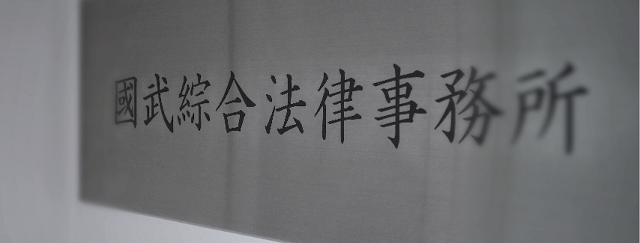 國武綜合法律事務所